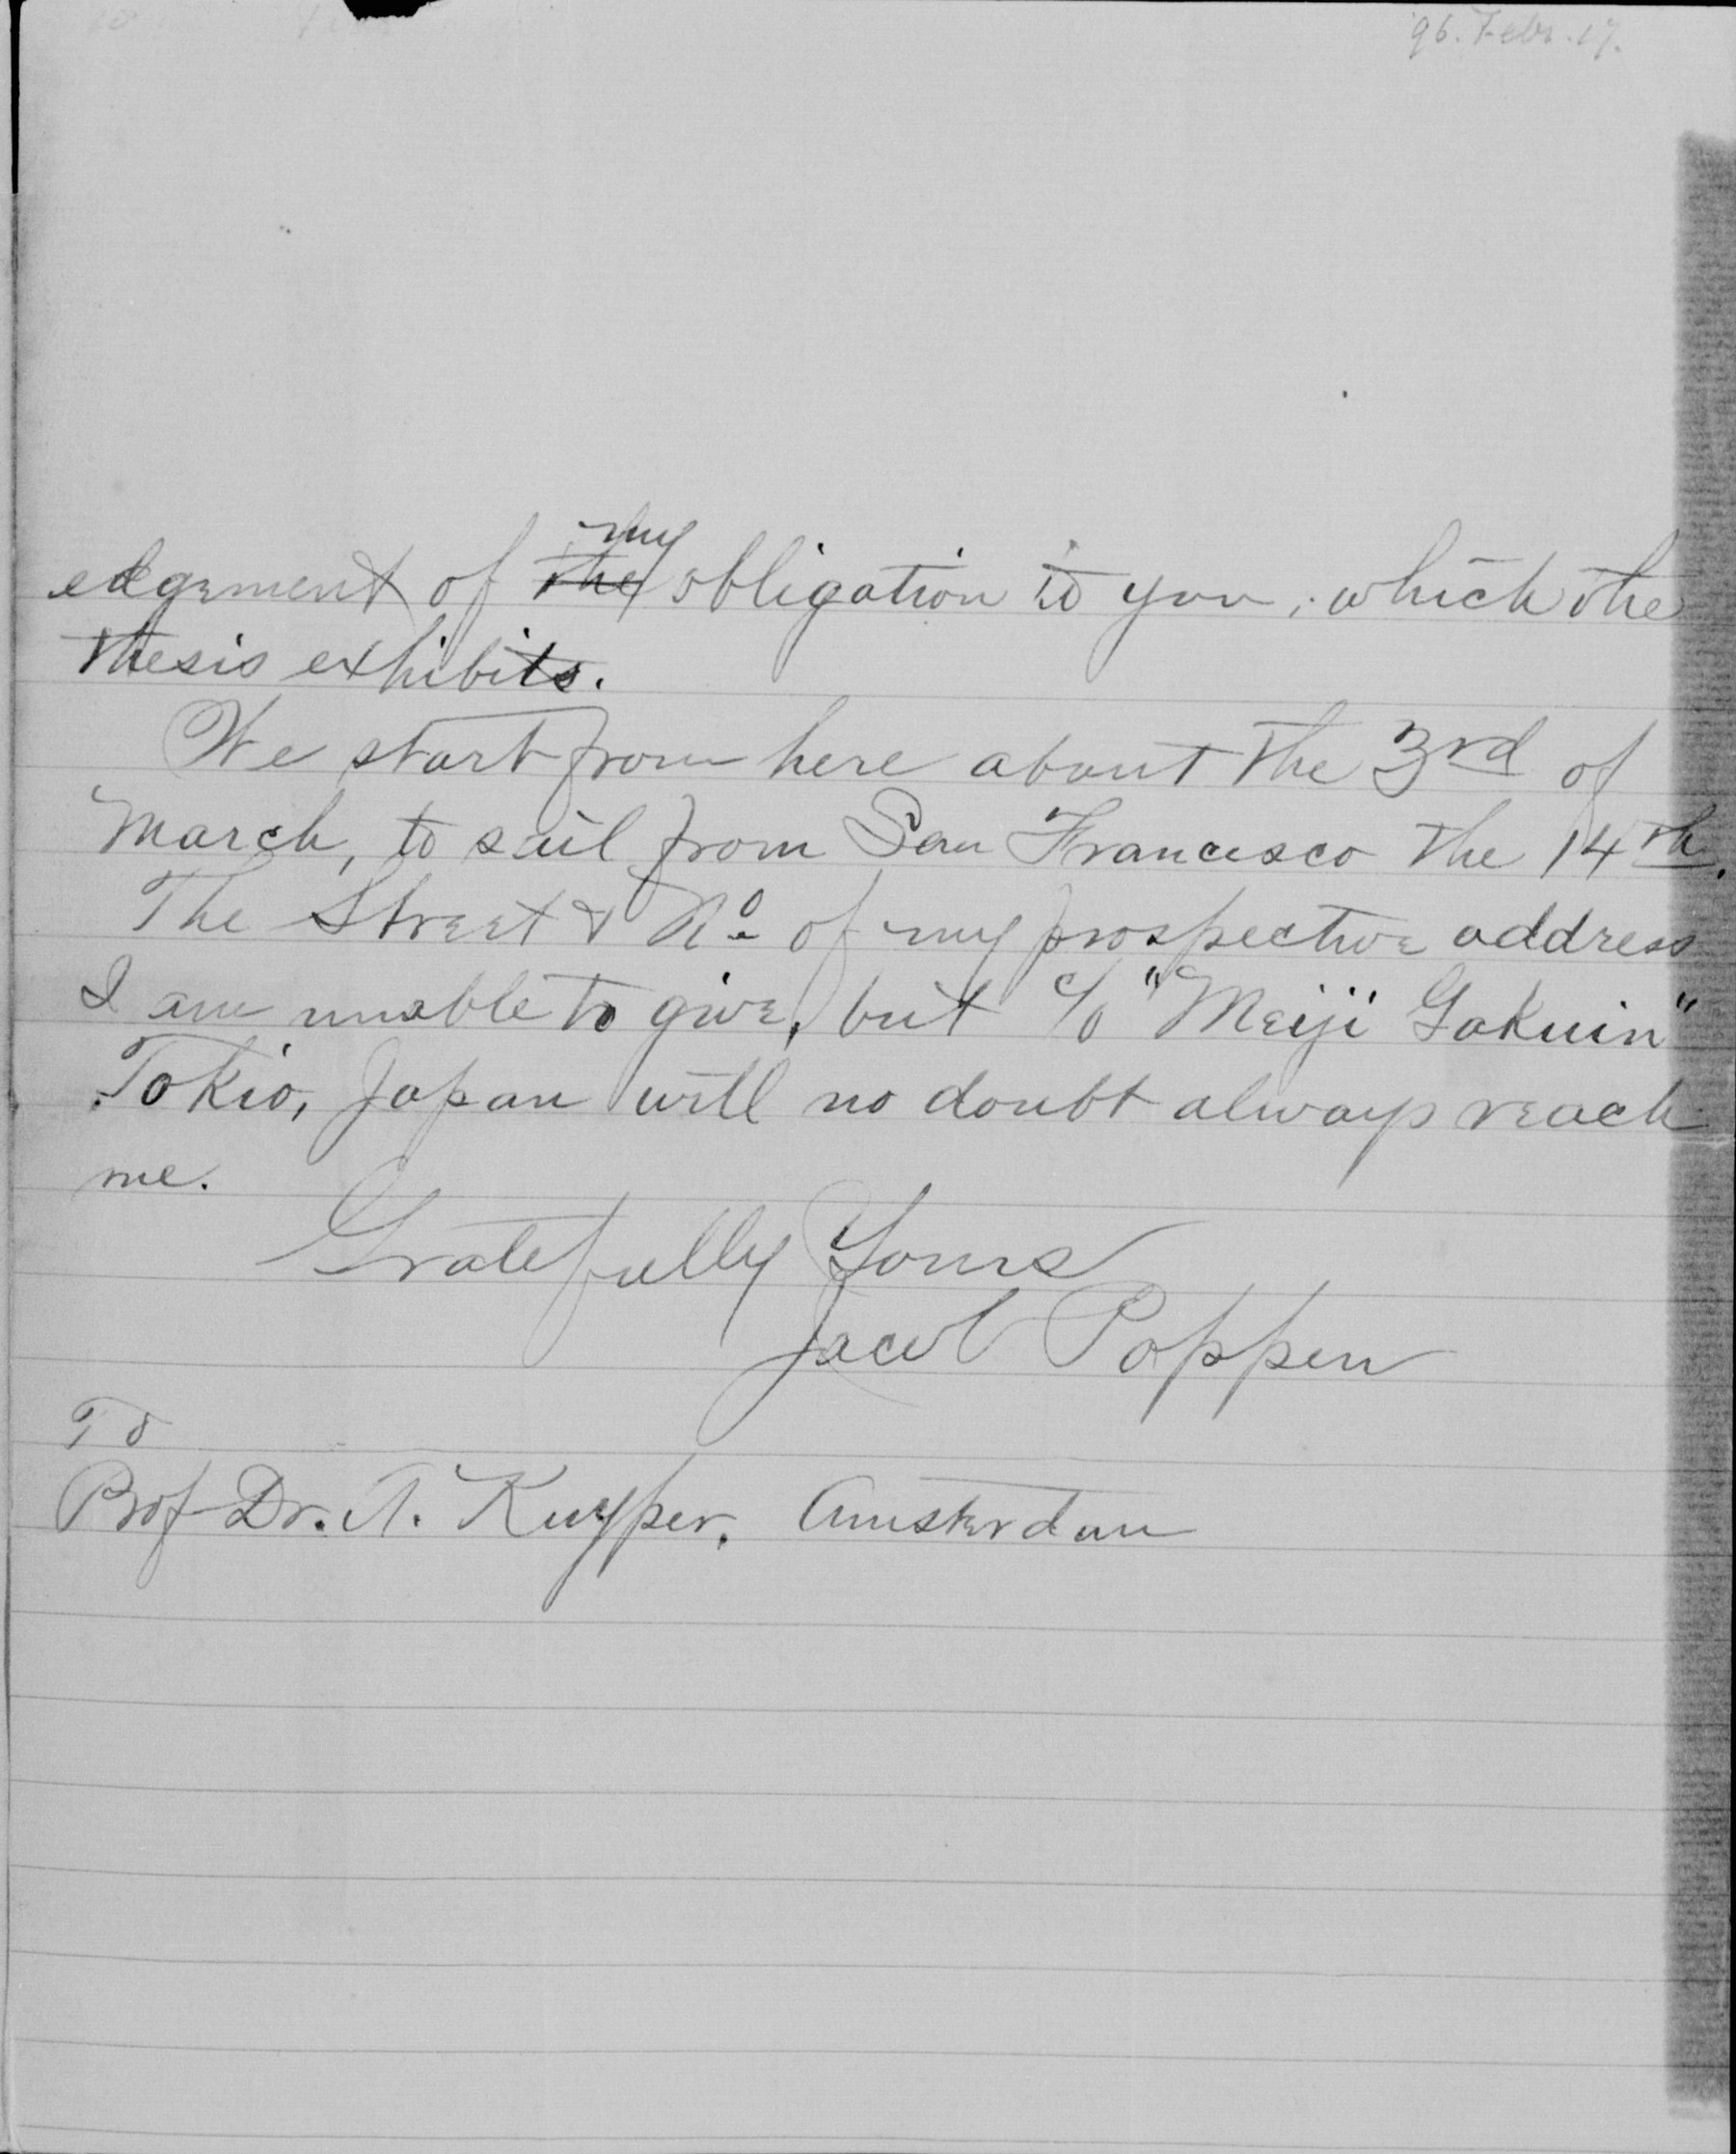 '96. Febr. 17.
my
edgement of the obligation to you, which the
thesis exhibits.
We start from here about the 3rd of
March, to sail from San Francisco the 14th.
The Street & No. of my prospective address
I am unable to give, but c/o "Meiji Gakuin"
Tokio, Japan will no doubt always reach
me.
Gratefully Yours
Jacob Poppen
To
Prof. Dr. A. Kuyper. Amsterdam